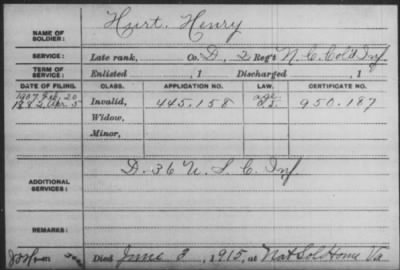 Hurt. Henry
NAME OF SOLDIER:
SERVICE: Late rank, Co. D, 2 Reg't N.C. Col'd Inf
TERM OF SERVICE: Enlisted , 1 Discharged , 1
DATE OF FILING. CLASS. APPLICATION NO. LAW. CERTIFICATE NO.
1907 Feb. 20 age
1882, Apr. 5 Invalid, 445.158 950.187
Widow,
Minor,
D. 36 U. S. C. Inf.
ADDITIONAL SERVICES:
REMARKS:
Died June 3, 1915, at Nat Sol Home Va